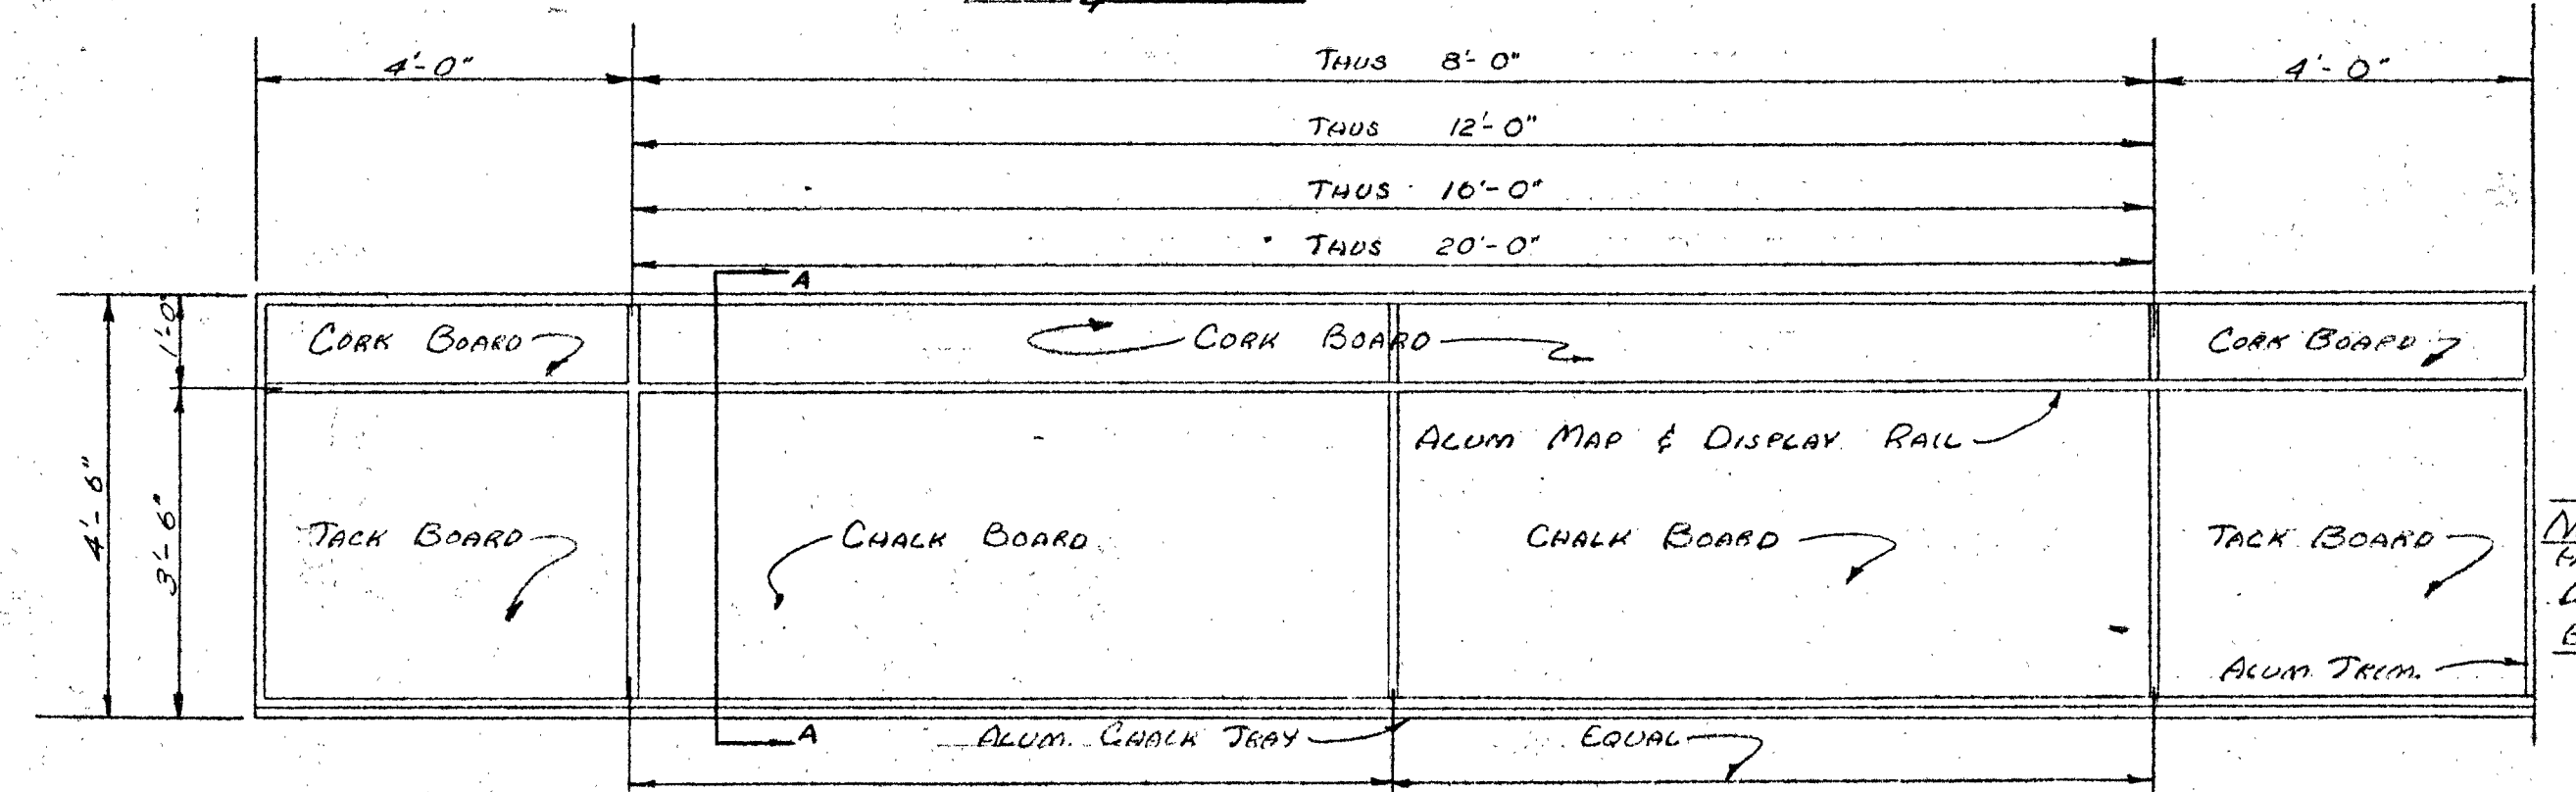 4'-0" THUS 8'-0" 4'-0"
THUS 12'-0"
THUS 16'-0"
THUS 20'-0"
A
1'-0"
CORK BOARD CORK BOARD CORK BOARD
ALUM MAP & DISPLAY RAIL
4'-6"
3'-6"
TACK BOARD CHALK BOARD CHALK BOARD TACK BOARD
ALUM TRIM.
A
ALUM. CHALK TRAY EQUAL